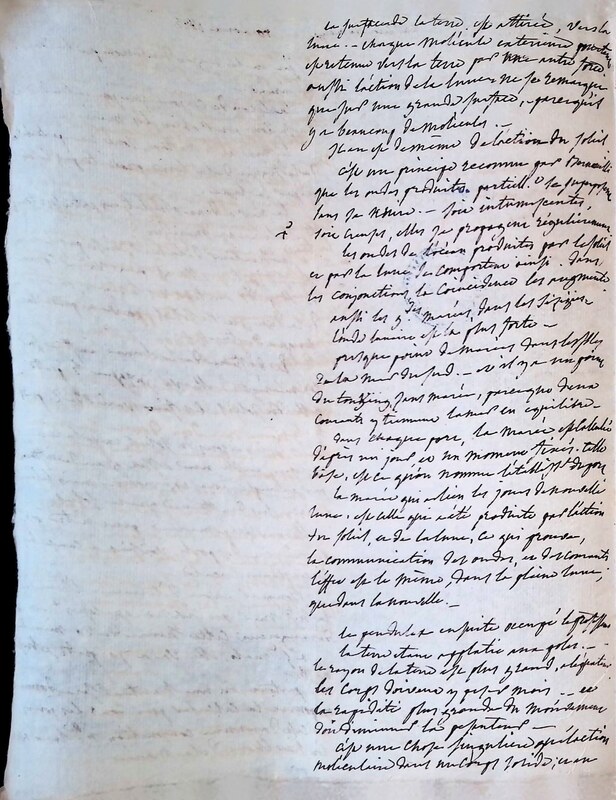 la surface de la terre, est attirée, vers la
lune -- chaque molécule extérieure
est retenue vers la terre par une autre force
aussi l'action de la lune ne se remarque
que sur une grande surface, parcequ'il
y a beaucoup de molécules. --
Il en est de même de l'action du soleil
c'est un principe reconnu par
que les ondes produites
-- soit
soit creuses, elles se propagent régulièrement
les ondes de l'océan produites par le soleil
et par la lune se comportent ainsi. dans
les conjonctions la coincidence les augmente
aussi les g.des marées, dans les sizigies
l'onde lunaire est la plus forte --
presque point de marées dans les isles
de la mer du sud. -- et il y a un port
du sans marée, parceque deux
courants y tiennent la mer en equilibre --
dans chaque port, la marée est calculée
d'après un jour et un moment fixés. telle
est ce qu'on nomme l'établiss.t du port
la marée qui a lieu les jours de nouvelle
lune, est celle qui a été produite par l'action
du soleil, et de la lune, ce qui prouve,
la communication des ondes, et des courants
l'effet est le même, dans la pleine lune,
que dans la nouvelle. --
le pendule a ensuite occupé le
la terre étant applatie aux poles. --
le rayon de la terre est plus grand, à
les corps doivent y peser moins -- et
la rapidité plus grande du mouvement
doit diminuer la pesanteur --
c'est une chose singulière que l'action
moléculaire dans un corps solide;